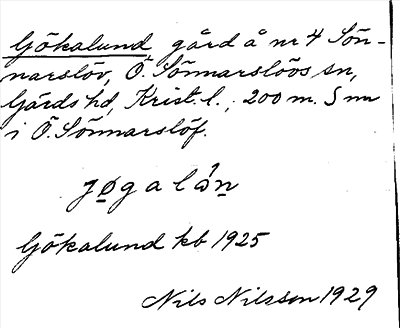 Gökalund, gård å nr 4 Sön-
narslöv, Ö. Sönnarslövs sn,
Gärds hd, Krist. l., 200 m. S nr
i Ö. Sönnarslöf.
jøgalán
Gökalund kb 1925
Nils Nilsson 1929